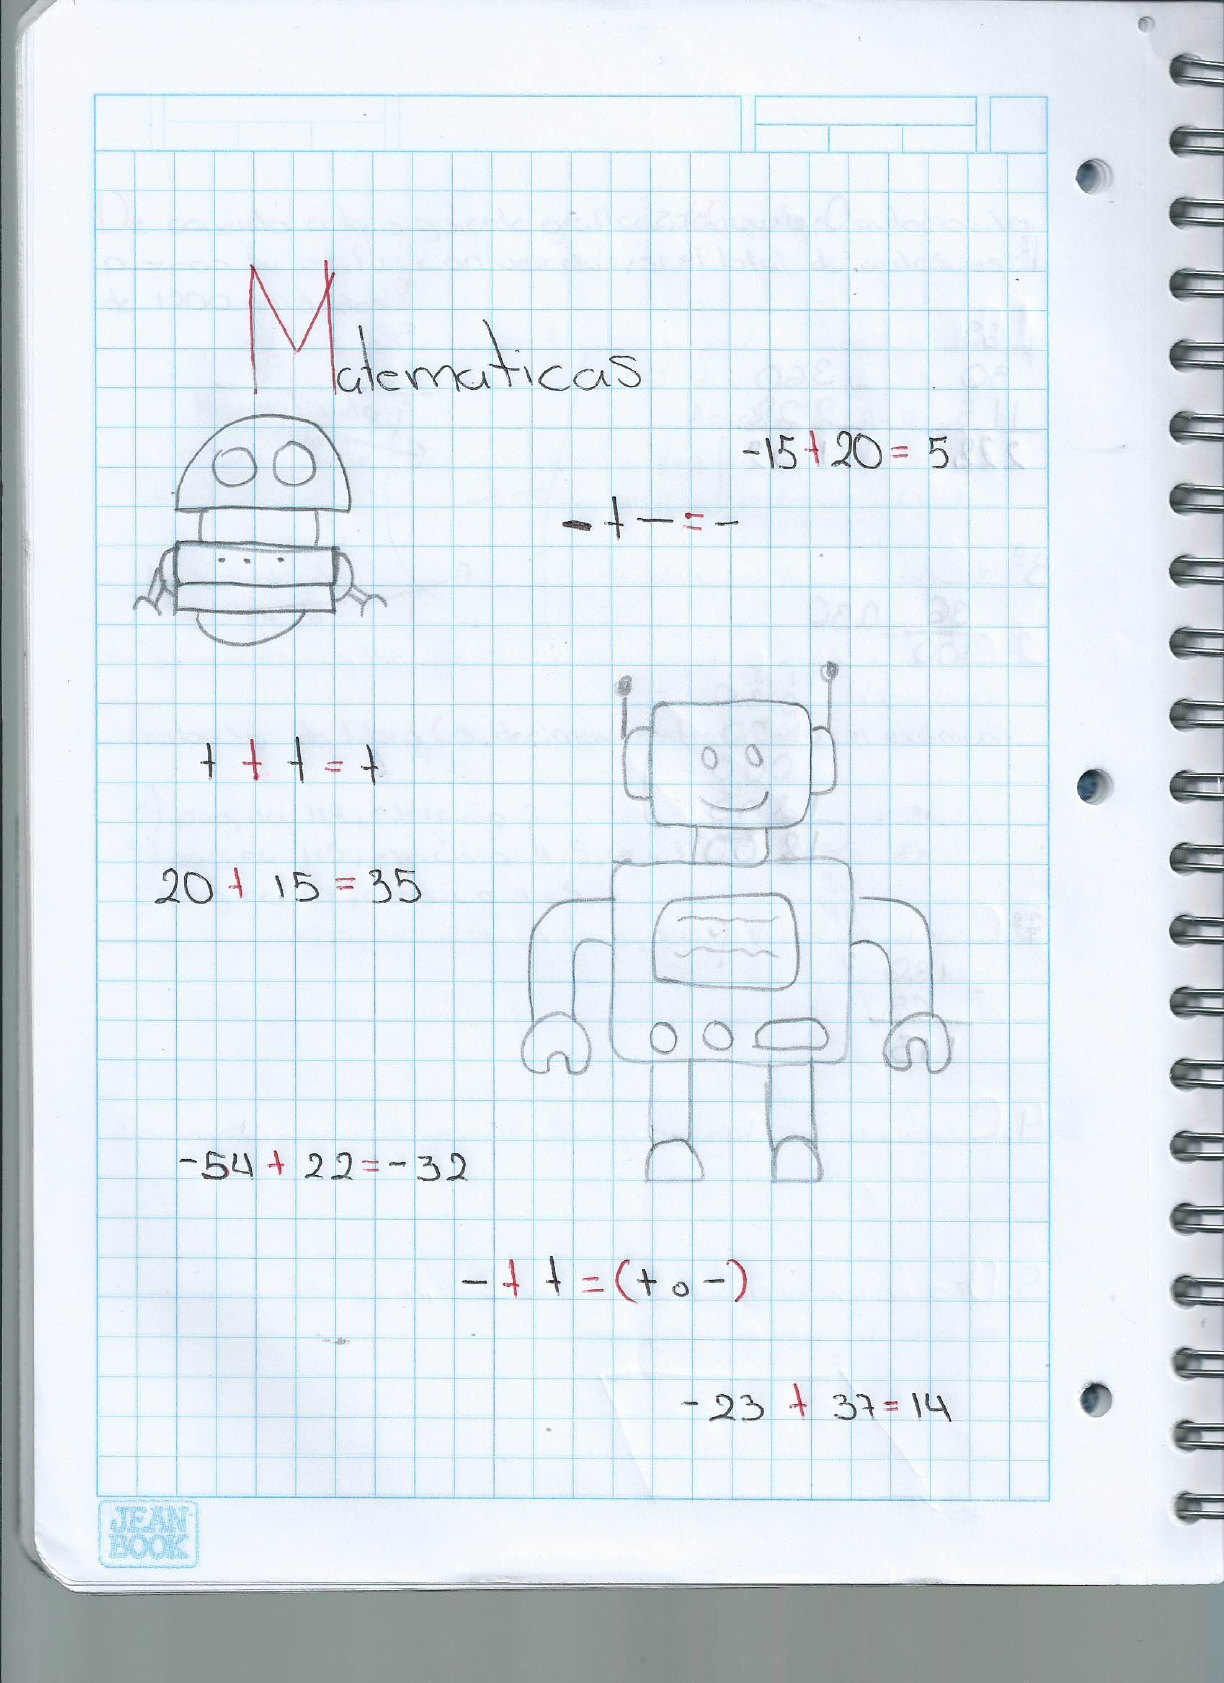 Matematicas
-15+20=5
- + - = -
+ + + = +
20 + 15 = 35
-54 + 22 = -32
- + + = (+ o -)
-23 + 37 = 14
JEAN
BOOK